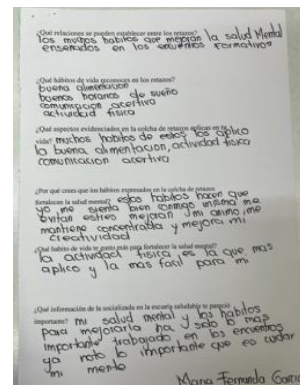 ¿Qué relaciones se pueden establecer entre los retazos?
los muchos habitos que mejoran la salud Mental
enseñados en los encuentros Formativos
¿Qué hábitos de vida reconoces en los retazos?
buena alimentacion
buenos horarios de sueño
comunicacion acertiva
actividad fisica
¿Qué aspectos evidenciados en la colcha de retazos aplicas en tu
vida? muchos habitos de estos los aplico
la buena alimentacion, actividad fisica
comunicacion acertiva
¿Por qué crees que los hábitos expresados en la colcha de retazos
fortalecen la salud mental? estos habitos hacen que
yo me sienta bien conmigo misma me
evitan estres mejoran mi animo, me
mantiene concentrada y mejora mi
creatividad
¿Qué habito de vida te gusta más para fortalecer la salud mental?
la actividad fisica es la que mas
aplico y la mas facil para mi
¿Qué información de la socializada en la escuela saludable te pareció
importante? mi salud mental y los habitos
para mejorarla ha sido lo mas
importante trabajado en los encuentros
ya noto lo importante que es cuidar
mi mente
Maria Fernanda Garcia